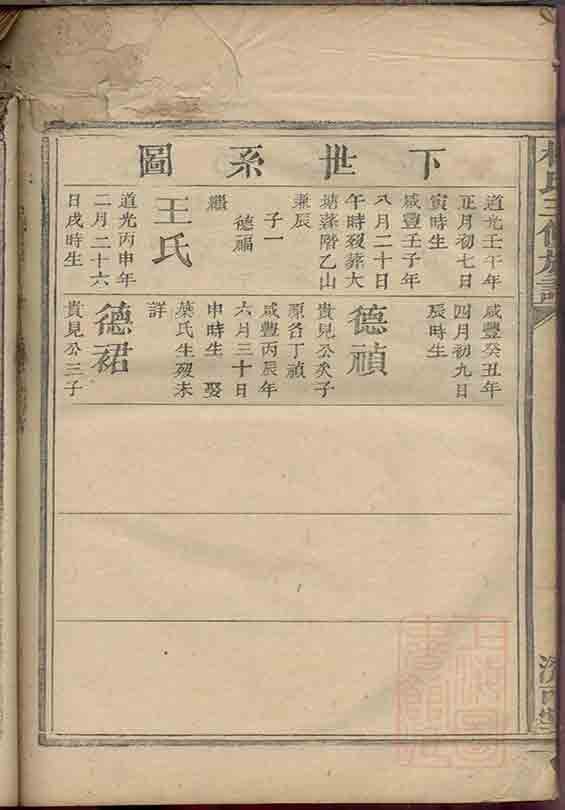 下世系圖
道光壬午年
正月初七日
寅時生
咸豐壬子年
八月二十日
午時歿葬大
塘莲階乙山
兼辰
子一
德福
繼
王氏
道光丙申年
二月二十六
日戌時生
咸豐癸丑年
四月初九日
辰時生
德禎
貴見公次子
原名丁禎
咸豐丙辰年
六月三十日
申時生 娶
葉氏生歿未
詳
德裙
貴見公三子
氏三修族譜